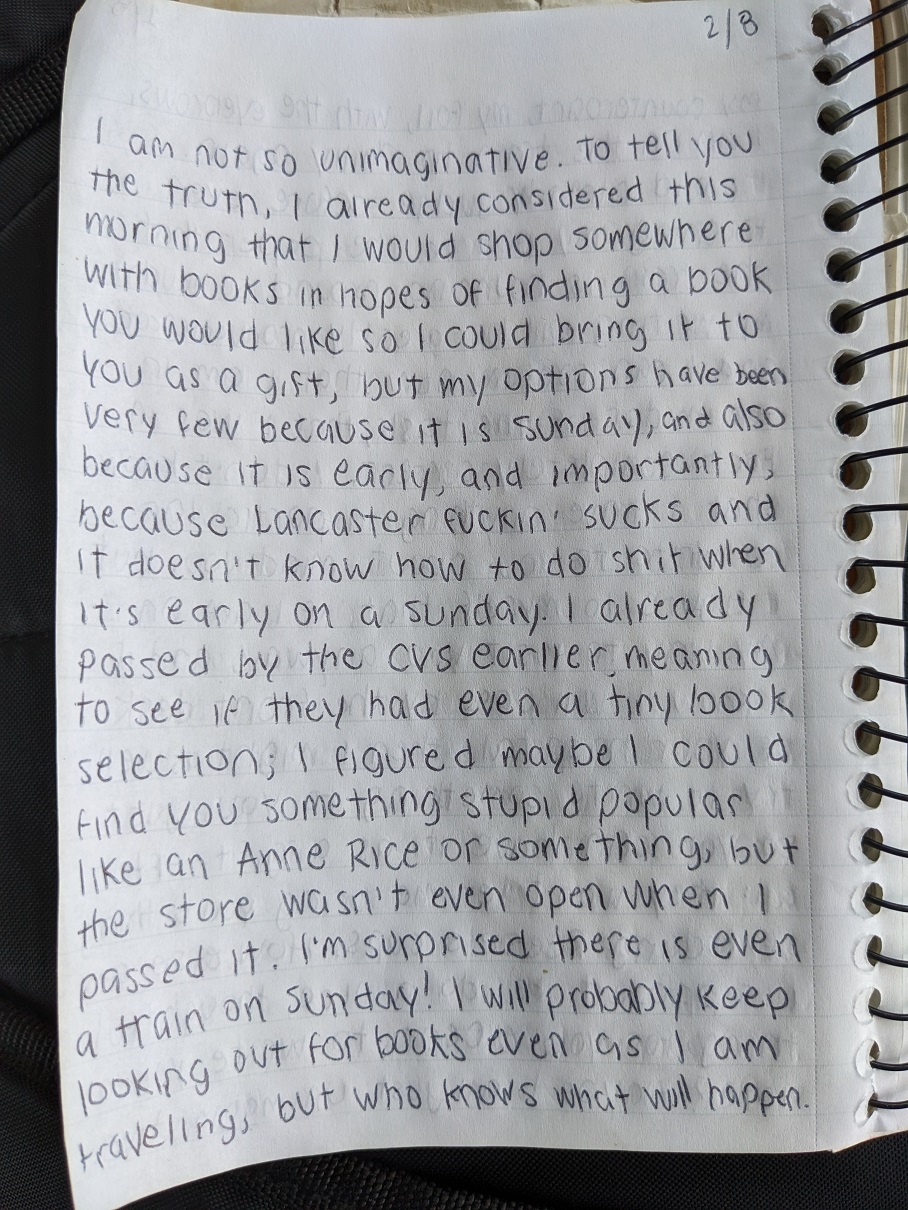 2/8
I am not so unimaginative. To tell you
the truth, I already considered this
morning that I would shop somewhere
with books in hopes of finding a book
you would like so I could bring it to
you as a gift, but my options have been
very few because it is Sunday, and also
because it is early, and importantly,
because Lancaster fuckin' sucks and
it doesn't know how to do shit when
it's early on a Sunday. I already
passed by the CVS earlier, meaning
to see if they had even a tiny book
selection; I figured maybe I could
find you something stupid popular
like an Anne Rice or something, but
the store wasn't even open when I
passed it. I'm surprised there is even
a train on Sunday! I will probably keep
looking out for books even as I am
traveling, but who knows what will happen.